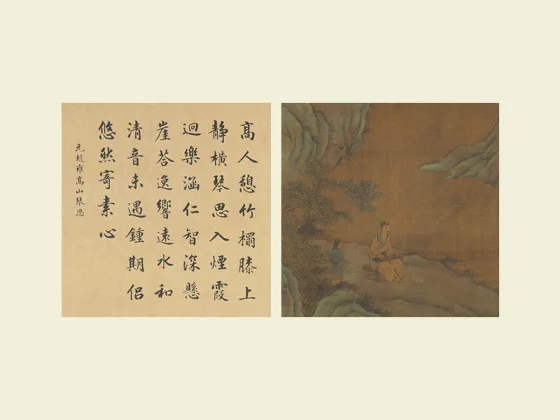 高人憩竹榻膝上
靜橫琴思入煙霞
迥樂涵仁智深懸
崖荅逸響遠水和
清音未遇鍾期侶
悠然寄素心
元趙雍高山琴思